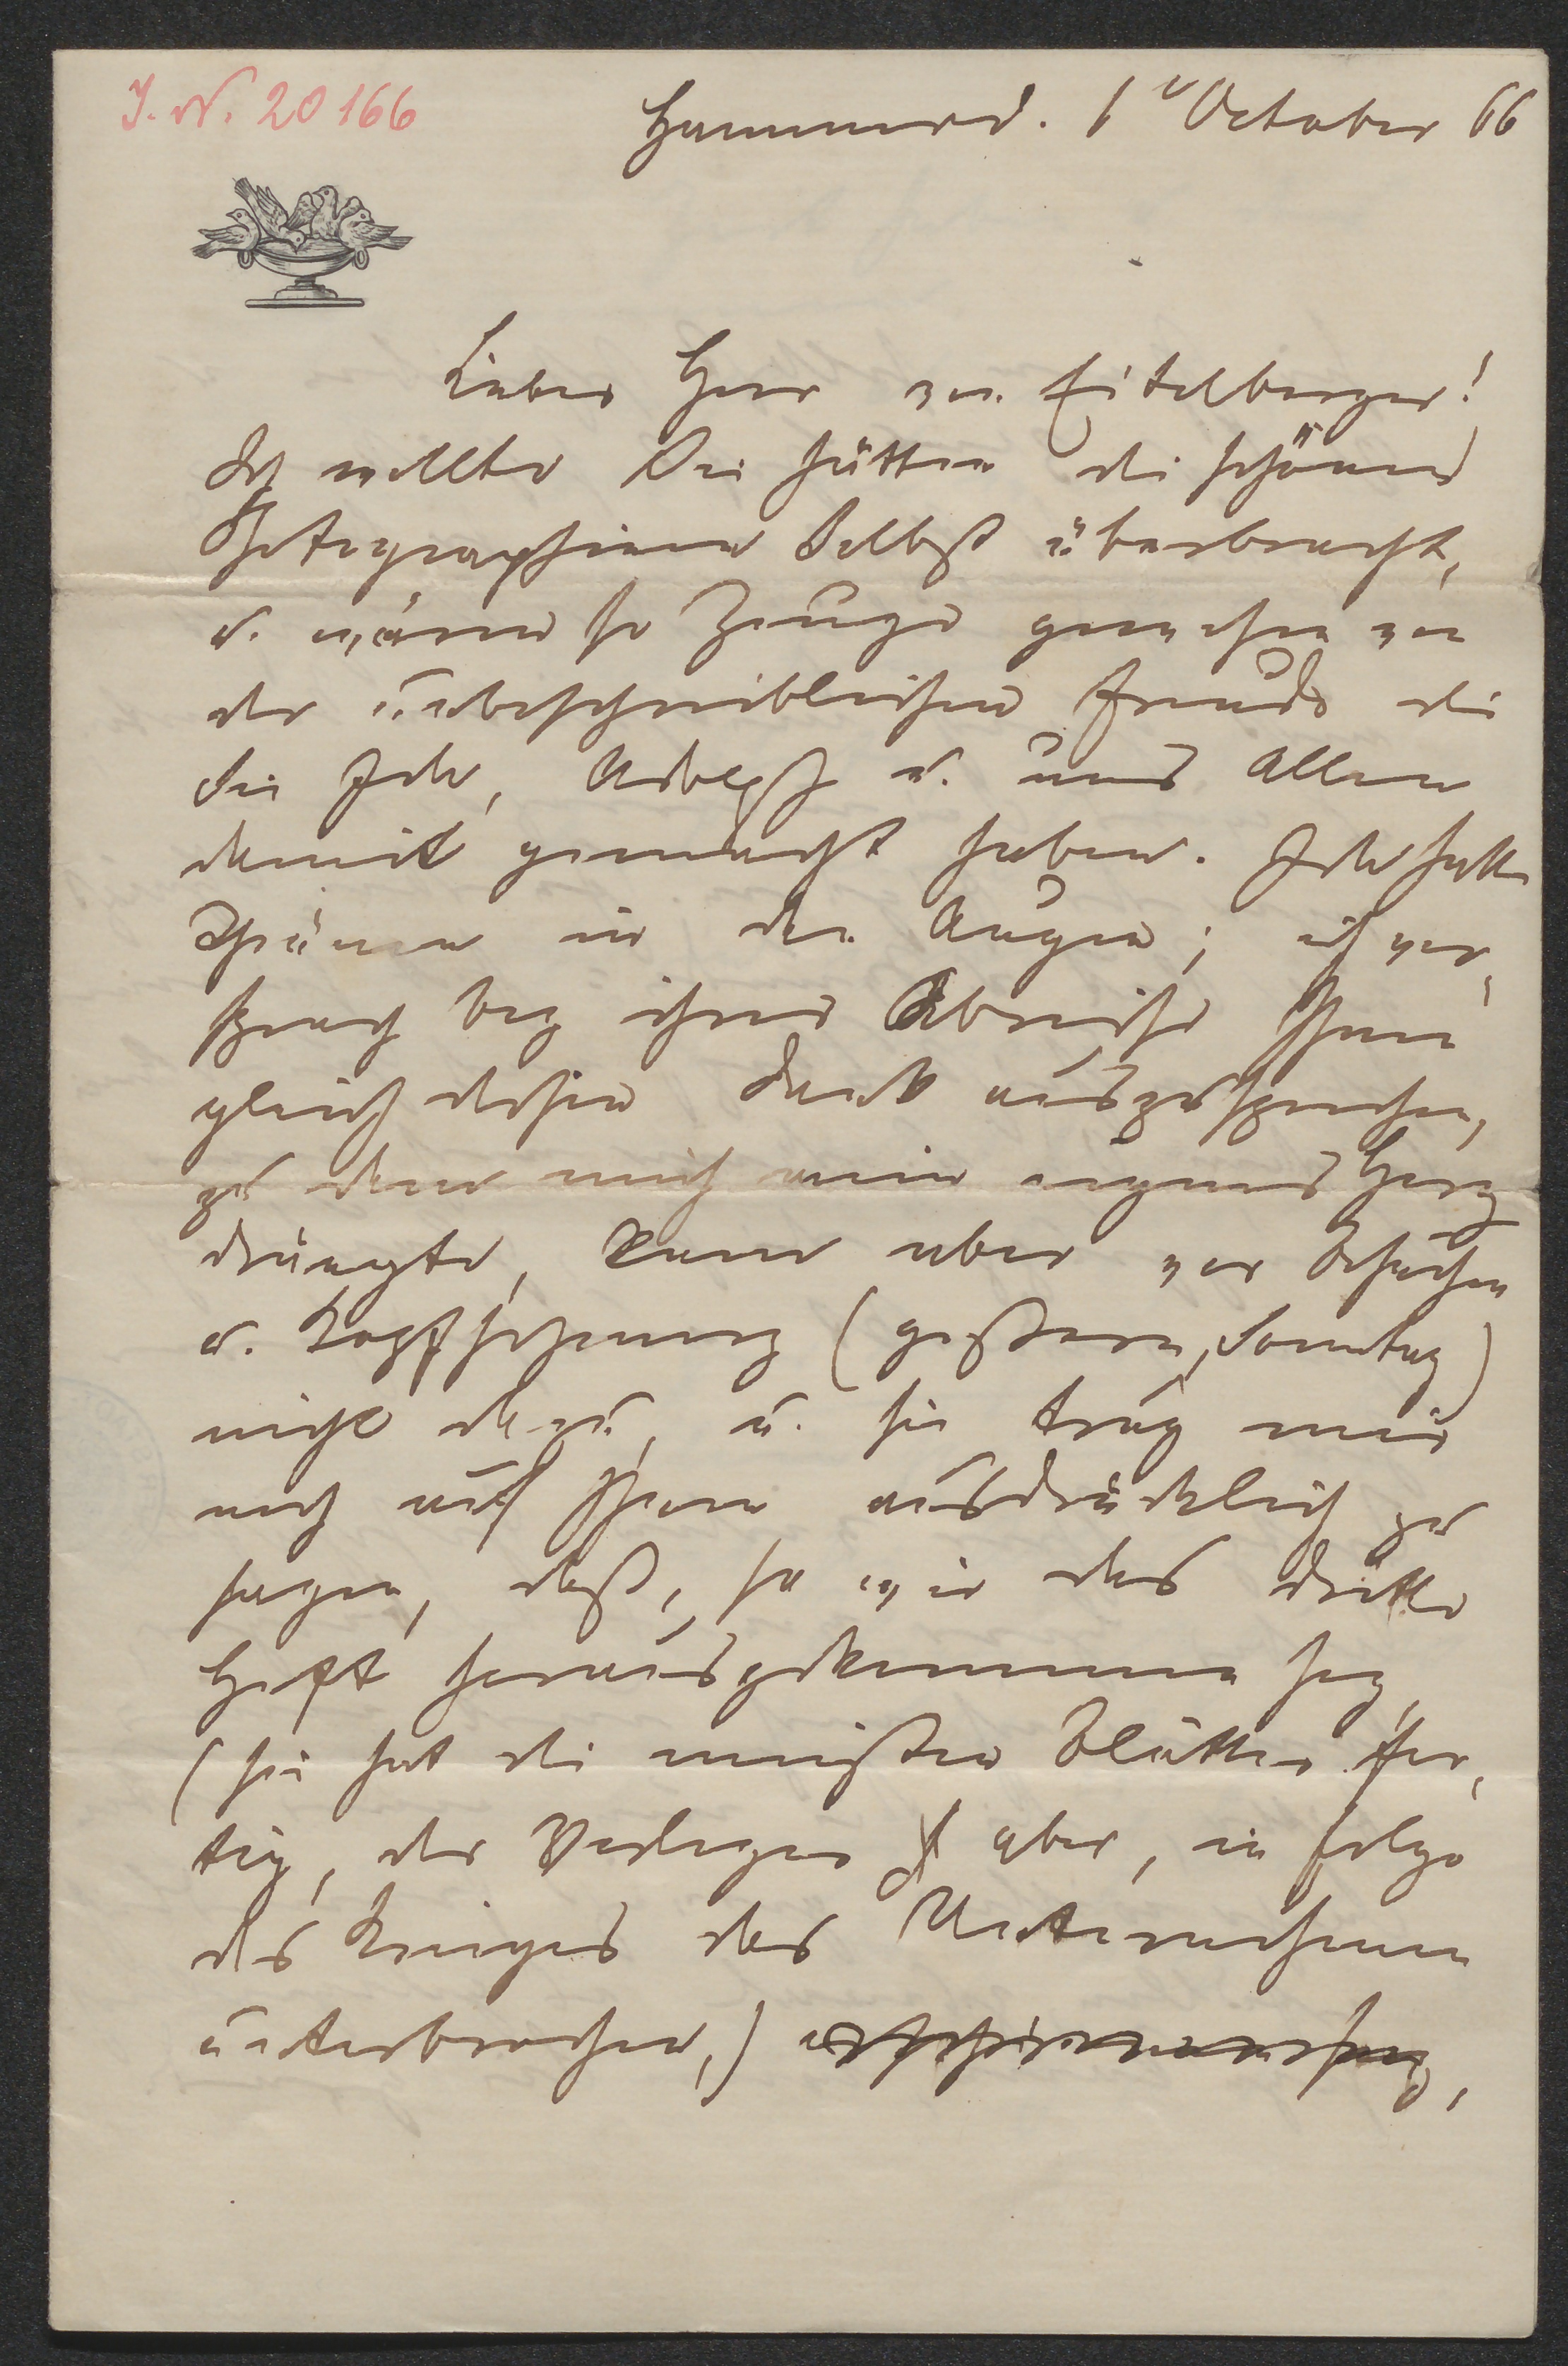 J. N. 20166
Hannover. 1 October 66
Lieber Herr von Eitelberger!
Ich wollte Sie hätten die schönen
Photographien Selbst überbracht,
u. wären so Zeuge gewesen von
der unbeschreiblichen Freude die
Sie Ida, Adolph u. uns Allen
damit gemacht haben. Ida hatte
Thränen in den Augen; ich ver-
sprach bey ihrer Abreise Ihnen
gleich dessen Dank auszusprechen,
zu dem mich mein eigenes Herz
drängte, kam aber vor Besuchen
u. Kopfschmerz (gestern, Sonntag)
nicht dazu, u. sie trug mir
noch auf Ihnen ausdrücklich zu
sagen, daß, so wie das dritte
Heft herausgekommen sey,
(sie hat die meisten Blätter fer-
tig, der Verleger aber, in Folge
des Krieges das Unternehmen
unterbrochen,)